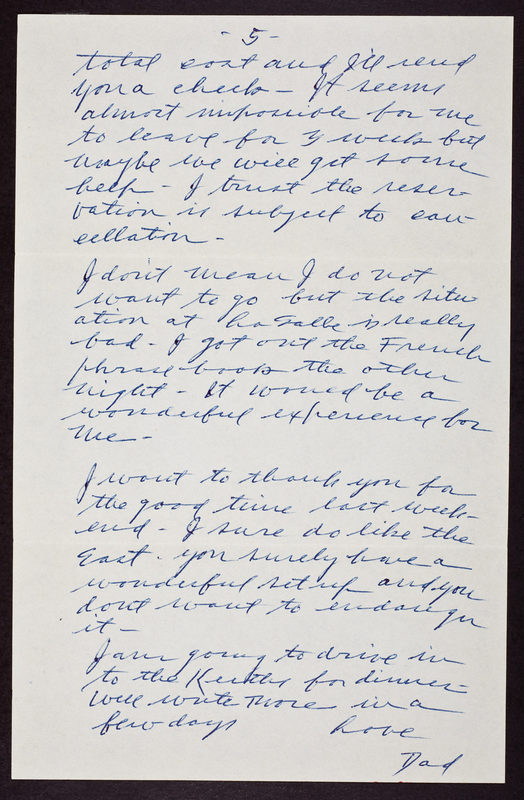 - 5 -
total cost and I'll send
you a check - It seems
almost impossible for me
to leave for 3 weeks but
maybe we will get some
help - I trust the reser-
vation is subject to can-
cellation -
I don't mean I do not
want to go but the situ-
ation at LaSalle is really
bad - I got out the French
phrase book the other
night - It would be a
wonderful experience for
me -
I want to thank you for
the good time last week-
end - I sure do like the
East. you surely have a
wonderful set up and you
dont want to endanger
it -
I am going to drive in
to the for dinner -
Will write more in a
few days Love
Dad